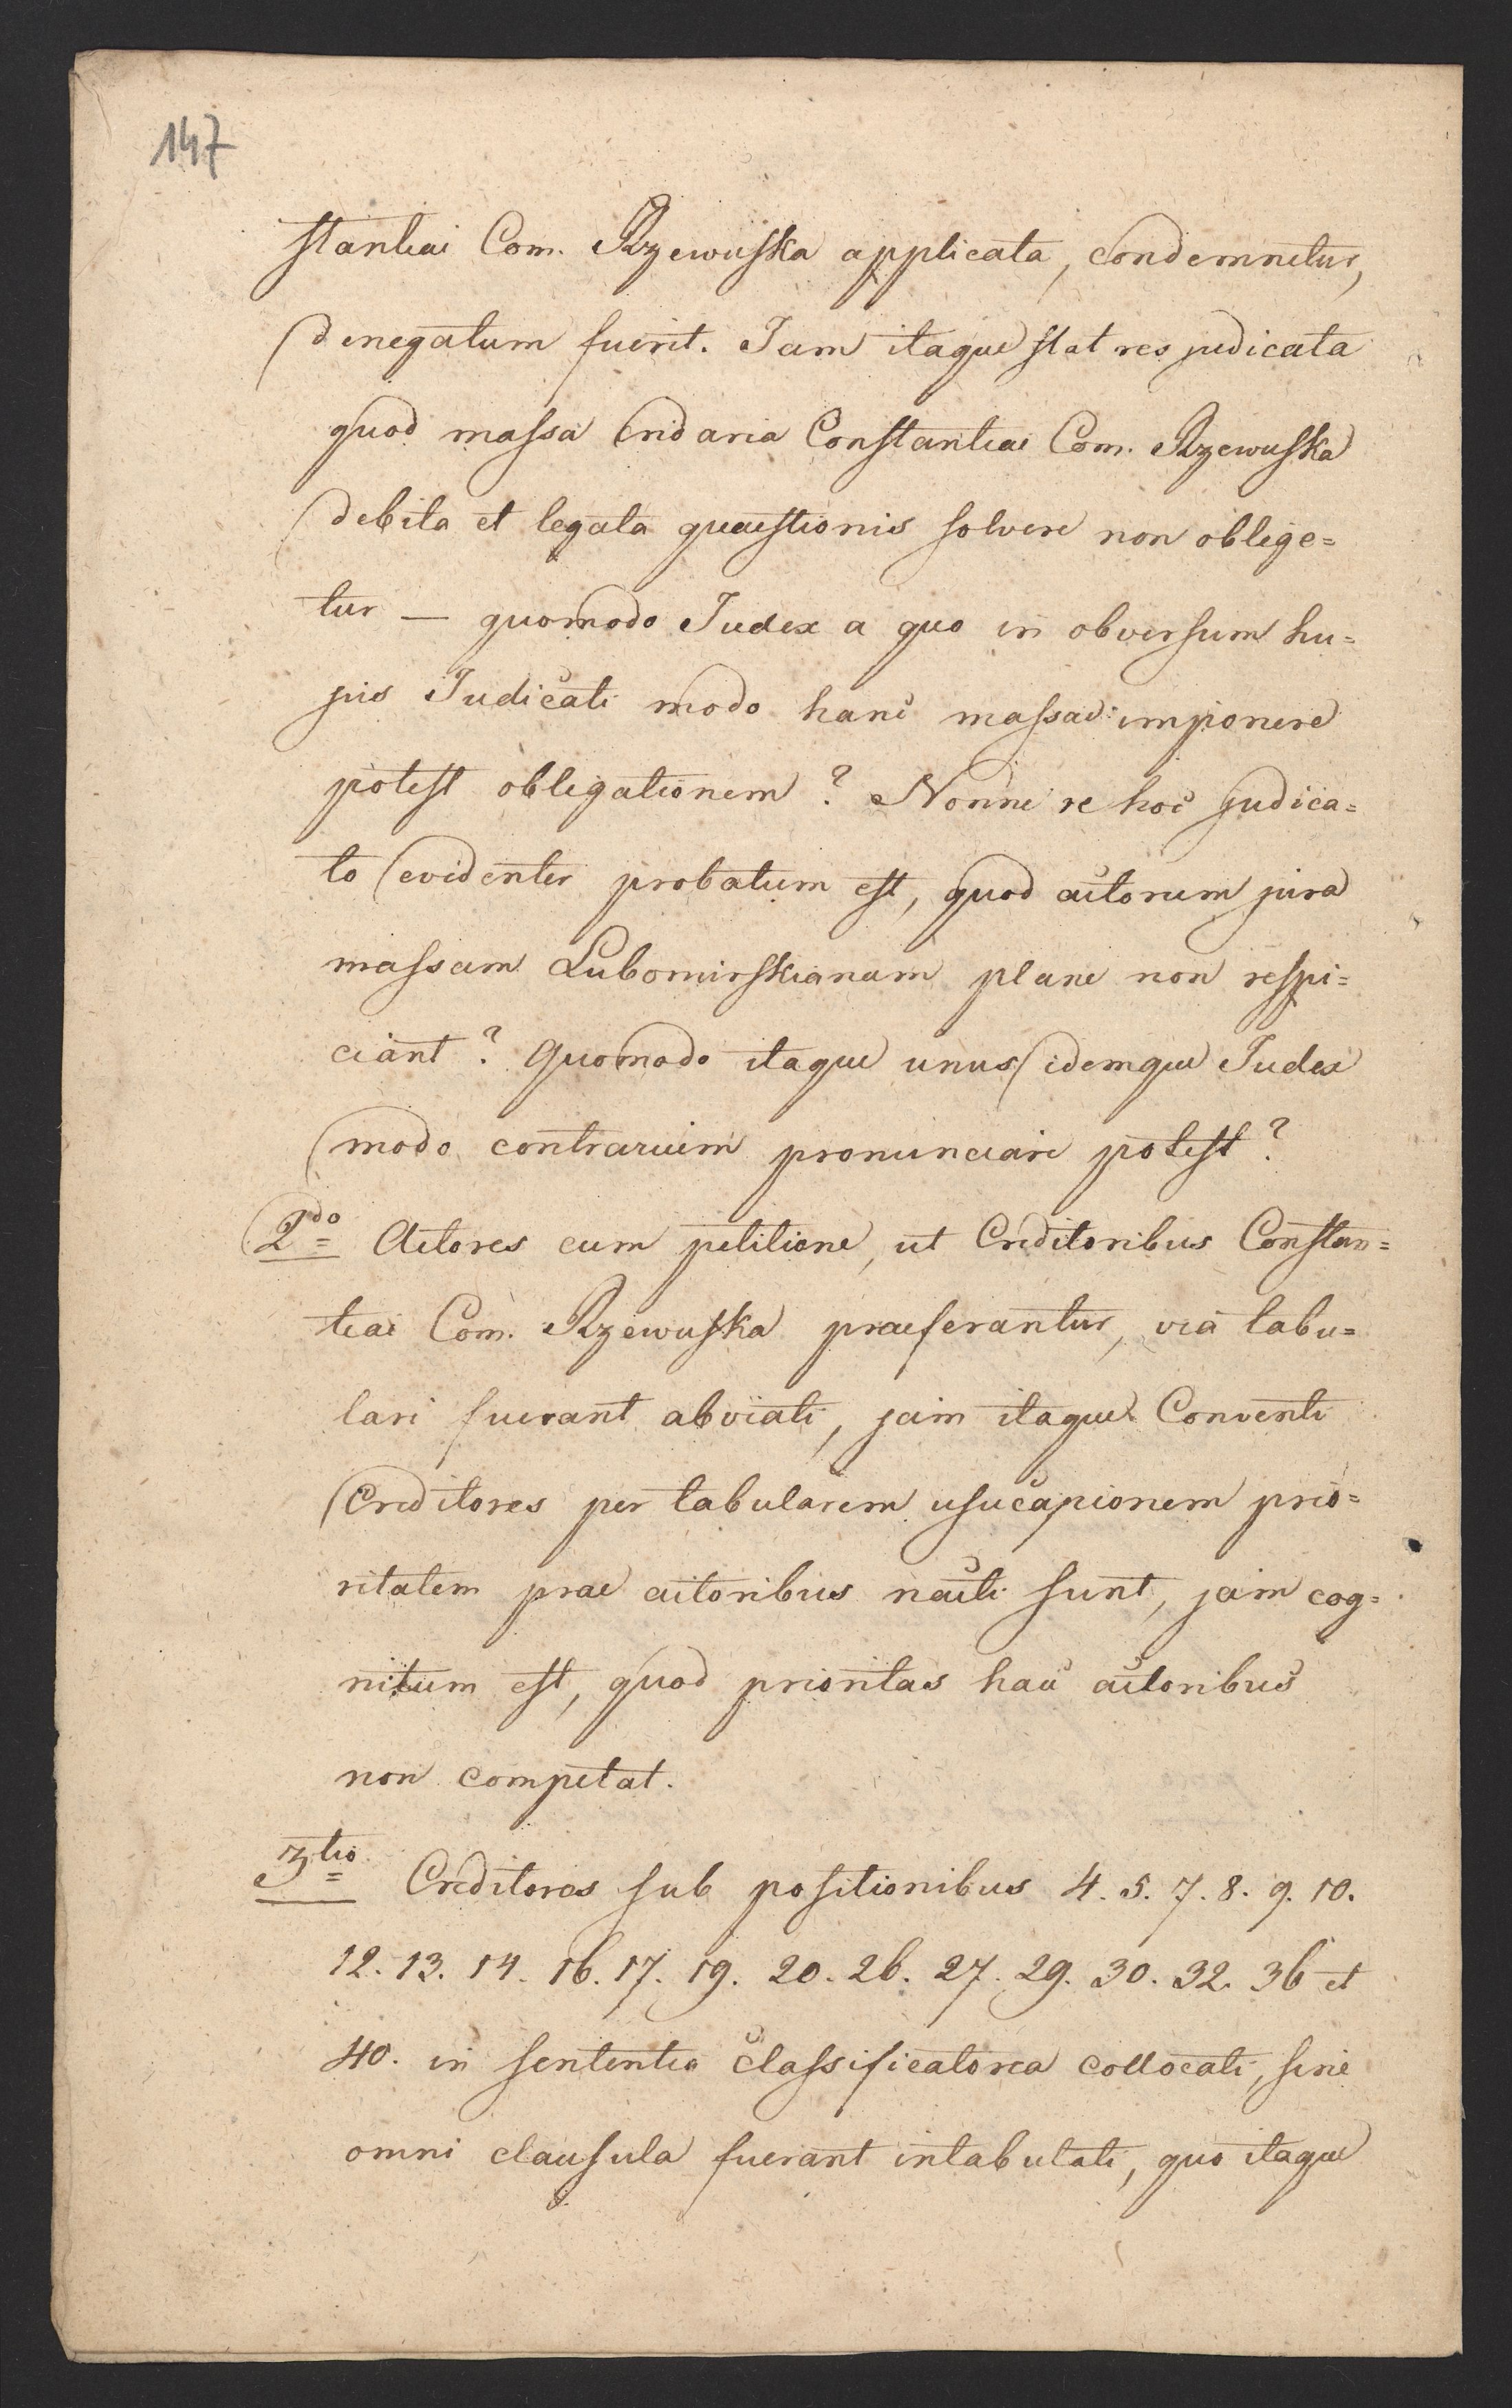 147
stantiae Com. Rzewuska applicata, condemnetur,
denegatum fuerit. Jam itaque stat res judicata
quod massa Cridaria Constantiae Com. Rzewuska
debita et legata quaestionis solvere non oblige=
tur — quomodo Judex a quo in obversum hu=
jus Judicati modo hanc massae imponere
potest obligationem? Nonne re hoc judica=
to evidenter probatum est, quod actorum jura
massam Lubomirskianam plane non respi=
ciant? Quomodo itaque unus idemque Judex
modo contrarium pronunciare potest?
2do= Actores cum petitione, ut Creditoribus Constan=
tiae Com. Rzewuska praeferantur, via tabu=
lari fuerant abviati, jam itaque Conventi
Creditores per tabularem usucapionem prio=
ritatem prae actoribus nacti sunt, jam cog=
nitum est, quod prioritas haec actoribus
non competat.
3tio= Creditores sub positionibus 4. 5. 7. 8. 9. 10.
12. 13. 14. 16. 17. 19. 20. 26. 27. 29. 30. 32. 36 et
40. in sententia classificatoria collocati, sine
omni clausula fuerant intabulati, quo itaque